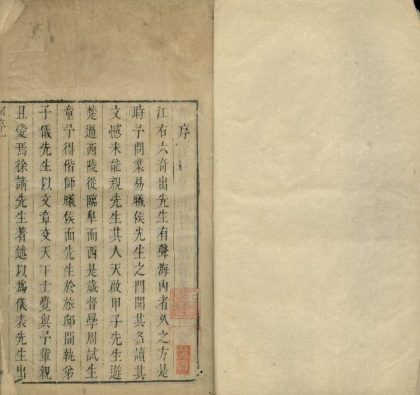 序
江右六奇出先生有聲海內者久之方是
時予問業易曦侯先生之門聞其名讀其
文憾未能親先生其人天啟甲子先生遊
楚過西陵從臨皋而西是歲督學周試生
童予得偕師曦侯面先生於旅邸間執弟
子儀先生以文章交天下士覺與予輩親
且愛焉徐請先生著述以為儀表先生出
序一